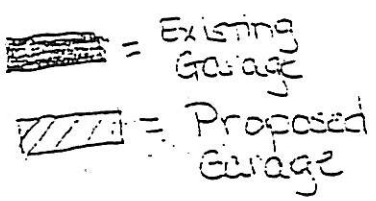 = Existing
Garage
= Proposed
Garage